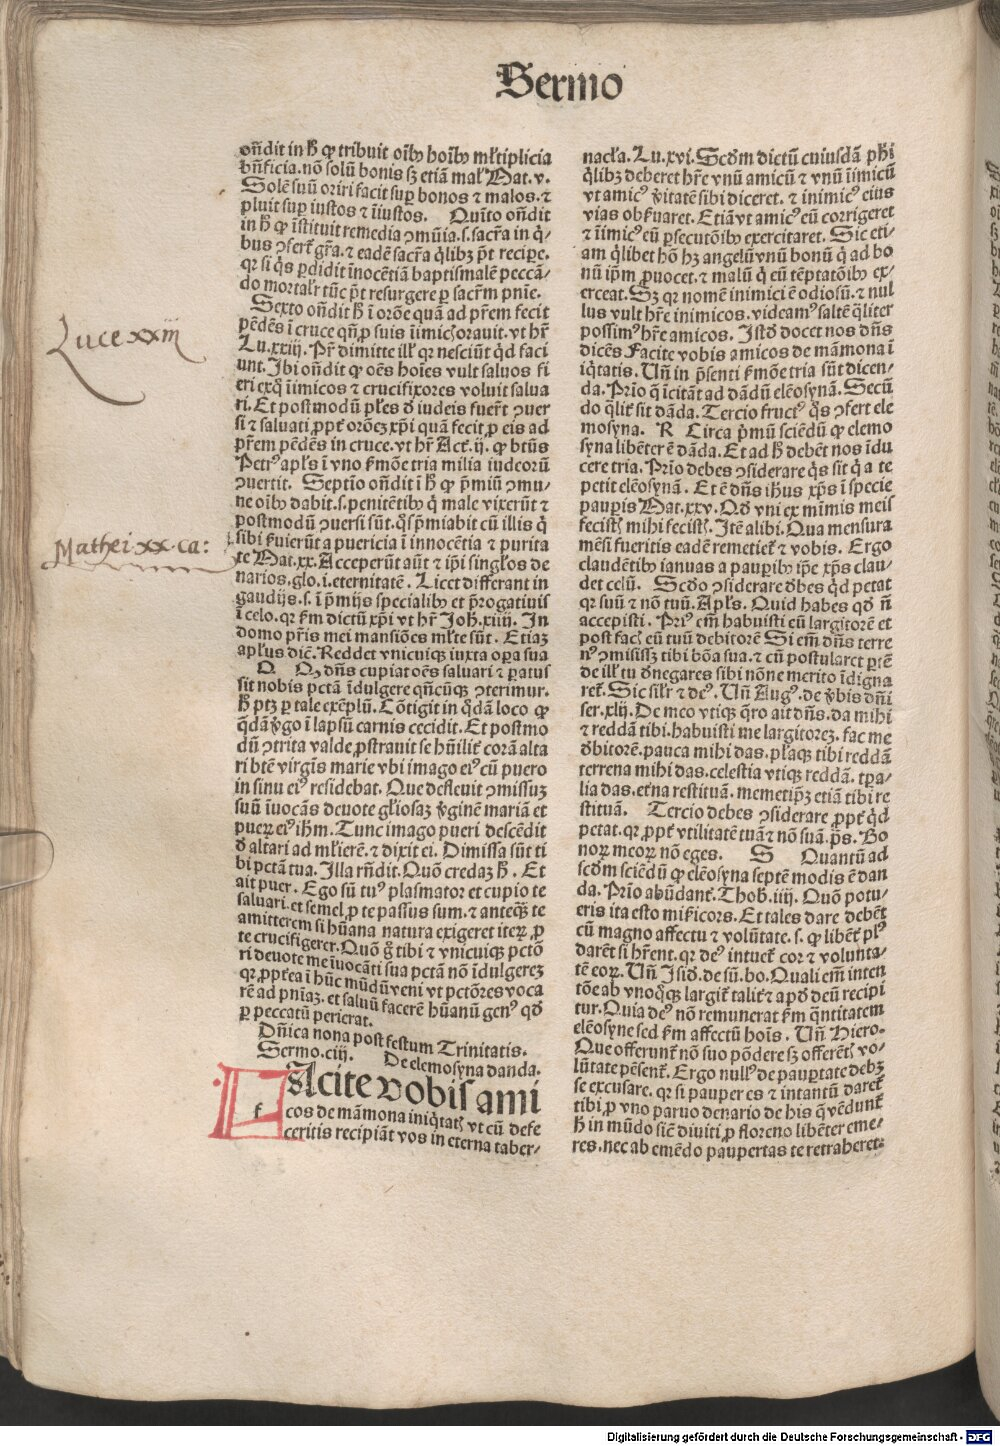 Sermo
oñdit in h̄ ꝙ tribuit oĩbꝰ hoĩbꝰ mľtiplicia
bñficia. nõ solũ bonis sꝫ etiã mał Mat. v.
Solẽ suũ oriri facit suꝑ bonos ⁊ malos. ⁊
pluit suꝑ iustos ⁊ ĩiustos. Quĩto oñdit
in h̄ ꝙ ĩstituit remedia ꝯmũia. s. sacr̃a in q̇-
bus ꝯfert̃ gr̃a. ⁊ eadẽ sacr̃a q̇libꝫ pt̃ reciꝑe.
qꝛ si q̇s ꝑdidit ĩnocẽtiã baptismalẽ peccã-
do mortaľr tũc pt̃ resurgere ꝑ sacr̃m pñie.
Sexto oñdit h̄ ĩ orõe quã ad pr̃em fecit
pẽdẽs ĩ cruce qñ ꝓ suis ĩimicꝭ orauit. vt hr̃
Lu. xxiij. Pr̃ dimitte ilľ qꝛ nesciũt qd̓ faci
unt. Ibi oñdit ꝙ oẽs hoĩes vult saluos fi
eri exq̇ ĩimicos ⁊ crucifixores voluit salua
ri. Et postmodũ pľes d̓ iudeis fuer̃t ꝯuer
si ⁊ saluati ꝓpt̃ orõeꝫ xp̃i quã fecit ꝓ eis ad
pr̃em pẽdẽs in cruce. vt hr̃ Act̃. ij. ꝙ btũs
Petrꝰ apľs ĩ vno ẜmõe tria milia iudeorũ
ꝯuertit. Septĩo oñdit ĩ h̄ ꝙ p̃miũ ꝯmu-
ne oĩbꝰ dabit. s. penitẽtibꝰ q̇ male vixerũt ⁊
postmodũ ꝯuersi sũt. q̇ˢ p̃miabit cũ illis q̇
sibi ẜuierũt a puericia ĩ innocẽtia ⁊ purita
te Mat. xx. Acceperũt aũt ⁊ ip̃i singľos de
narios. glo. i. eternitatẽ. Licet differant in
gaudijs. s. ĩ p̃mijs specialibꝰ et p̃rogatiuis
ĩ celo. qꝛ ẜm dictũ xp̃i vt hr̃ Joh̃. xiiij. In
domo pr̃is mei mansiões mľte sũt. Etiaꝫ
apľus dic̃. Reddet vnicuiqꝫ iuxta oꝑa sua
Q Qꝫ dñs cupiat oẽs saluari ⁊ ꝑatus
sit nobis pctã ĩdulgere qñcũqꝫ ꝯterimur.
h̄ ptꝫ ꝑ tale exẽplũ. Cõtigit in q̇dã loco ꝙ
q̇dã ṽgo ĩ lapsũ carnis cecidit. Et postmo
dũ ꝯtrita valde ꝓstrauit se hũilit̃ corã alta
ri btẽ virgĩs marie vbi imago eiꝰ cũ puero
in sinu eiꝰ residebat. Que defleuit ꝯmissuꝫ
suũ ĩuocãs deuote gľiosaꝫ ṽginẽ mariã et
pueꝝ eiꝰ ih̃m. Tunc imago pueri descẽdit
d̓ altari ad mľierẽ. ⁊ dixit ei. Dimissa sũt ti
bi pctã tua. Illa rñdit. Quõ credaꝫ h̄. Et
ait puer. Ego sũ tuꝰ plasmator et cupio te
saluari. et semel ꝓ te passus sum. ⁊ anteqꝫ te
amitterem si hũana natura exigeret iteꝝ ꝓ
te crucifigerer. Quõ g̃ tibi ⁊ vnicuiqꝫ pctõ
ri deuote me ĩuocãti sua pctã nõ ĩdulgereꝫ
qꝛ ꝓpt̃ea ĩ hũc mũdũ veni vt pctõres voca
rẽ ad pñiaꝫ. et saluũ facerẽ hũanũ genꝰ qd̓
ꝑ peccatũ perierat.
Dñica nona post festum Trinitatis.
Sermo. ciij. De elemosyna danda.
fAcite vobis ami
cos de mãmona iniq̇tatꝭ vt cũ defe
ceritis recipiãt vos in eterna taber-
nacľa. Lu. xvi. Scd̓m dictũ cuiusdã ph̃i
q̇libꝫ deberet hr̃e vnũ amicũ ⁊ vnũ ĩimicũ
vt amicꝰ ṽitatẽ sibi diceret. ⁊ inimicꝰ eius
vias obẜuaret. Etiã vt amicꝰ eũ corrigeret
⁊ ĩimicꝰ eũ ꝑsecutõibꝰ exercitaret. Sic eti-
am q̇libet hõ hꝫ angelũ vnũ bonũ q̇ ad bo
nũ ip̃m ꝓuocet. ⁊ malũ q̇ eũ tẽptatõibꝰ ex-
erceat. Sꝫ qꝛ nomẽ inimici ẽ odiosũ. ⁊ nul
lus vult hr̃e inimicos. videamꝰ saltẽ q̇liter
possimꝰ hr̃e amicos. Istd̓ docet nos dñs
dicẽs Facite vobis amicos de mãmona ĩ
iq̇tatis. Uñ in p̃senti ẜmõe tria sũt dicen-
da. Prĩo q̇ ĩcitãt ad dãdũ elẽosynã. Secũ
do q̇lit̃ sit dãda. Tercio fructꝰ q̇s ꝯfert ele
mosyna. R Circa p̃mũ sciẽdũ ꝙ elemo
syna libẽter ẽ dãda. Et ad h̄ debẽt nos ĩdu
cere tria. Prĩo debes ꝯsiderare q̇s sit q̇ a te
petit elẽosynã. Et ẽ dñs ih̃us xp̃s ĩ specie
pauꝑis Mat. xxv. Qd̓ vni ex mĩmis meis
fecistꝭ mihi fecistꝭ. Itẽ alibi. Qua mensura
mẽsi fueritis eadẽ remetiet̃ ⁊ vobis. Ergo
claudẽtibꝰ ianuas a pauꝑibꝰ ip̃e xp̃s clau-
det celũ. Scd̓o ꝯsiderare d̓bes qd̓ petat
qꝛ suũ ⁊ nõ tuũ. Apľs. Quid habes qd̓ ñ
accepisti. Priꝰ em̃ habuisti eũ largitorẽ et
post facꝭ eũ tuũ debitorẽ Si em̃ dñs terre
nꝰ ꝯmisissꝫ tibi bõa sua. ⁊ cũ postularet ꝑtẽ
de ilľ tu d̓negares sibi nõne merito ĩdigna
ret̃. Sic siľr ⁊ deꝰ. Uñ Augꝰ. de ṽbis dñi
ser. xlij. De meo vtiqꝫ q̃ro ait dñs. da mihi
⁊ reddã tibi. habuisti me largitoreꝫ. fac me
d̓bitorẽ. pauca mihi das. pľaqꝫ tibi reddã
terrena mihi das. celestia vtiqꝫ reddã. tꝑa-
lia das. et̃na restituã. memetip̃ꝫ etiã tibi re
stituã. Tercio debes ꝯsiderare ꝓpt̃ qd̓
petat. qꝛ ꝓpt̃ vtilitatẽ tuã ⁊ nõ suã. p̃s. Bo
noꝝ meoꝝ nõ eges. S Quantũ ad
scd̓m sciẽdũ ꝙ elẽosyna septẽ modis ẽ dan
da. Prĩo abũdant̃. Thob̃. iiij. Quõ potu-
eris ita esto mĩẜicors. Et tales dare debẽt
cũ magno affectu ⁊ volũtate. s. ꝙ libẽt̃ plꝰ
darẽt si hr̃ent. qꝛ deꝰ intuet̃ cor ⁊ volunta-
tẽ eoꝝ. Uñ Isid̓. de sũ. bo. Quali em̃ inten
tõe ab vnoq̇qꝫ largit̃ talit̃ ⁊ apd̓ deũ recipi
tur. Quia deꝰ nõ remunerat ẜm q̃ntitatem
elẽosyne sed ẜm affectũ hoĩs. Uñ Hiero.
Que offerunt̃ nõ suo põdere sꝫ offerẽtꝭ vo-
lũtate pẽsent̃. Ergo nullꝰ de pauꝑtate debꝫ
se excusare. qꝛ si pauper es ⁊ intantũ daret̃
tibi ꝓ vno paruo denario de his q̃ vẽdunt̃
h̄ in mũdo siẽ diuiti ꝓ floreno libẽter eme-
res. nec ab emẽdo paupertas te retraheret:
Luce xxiij
Mathei · xx · ca:
Digitalisierung gefördert durch die Deutsche Forschungsgemeinschaft - DFG